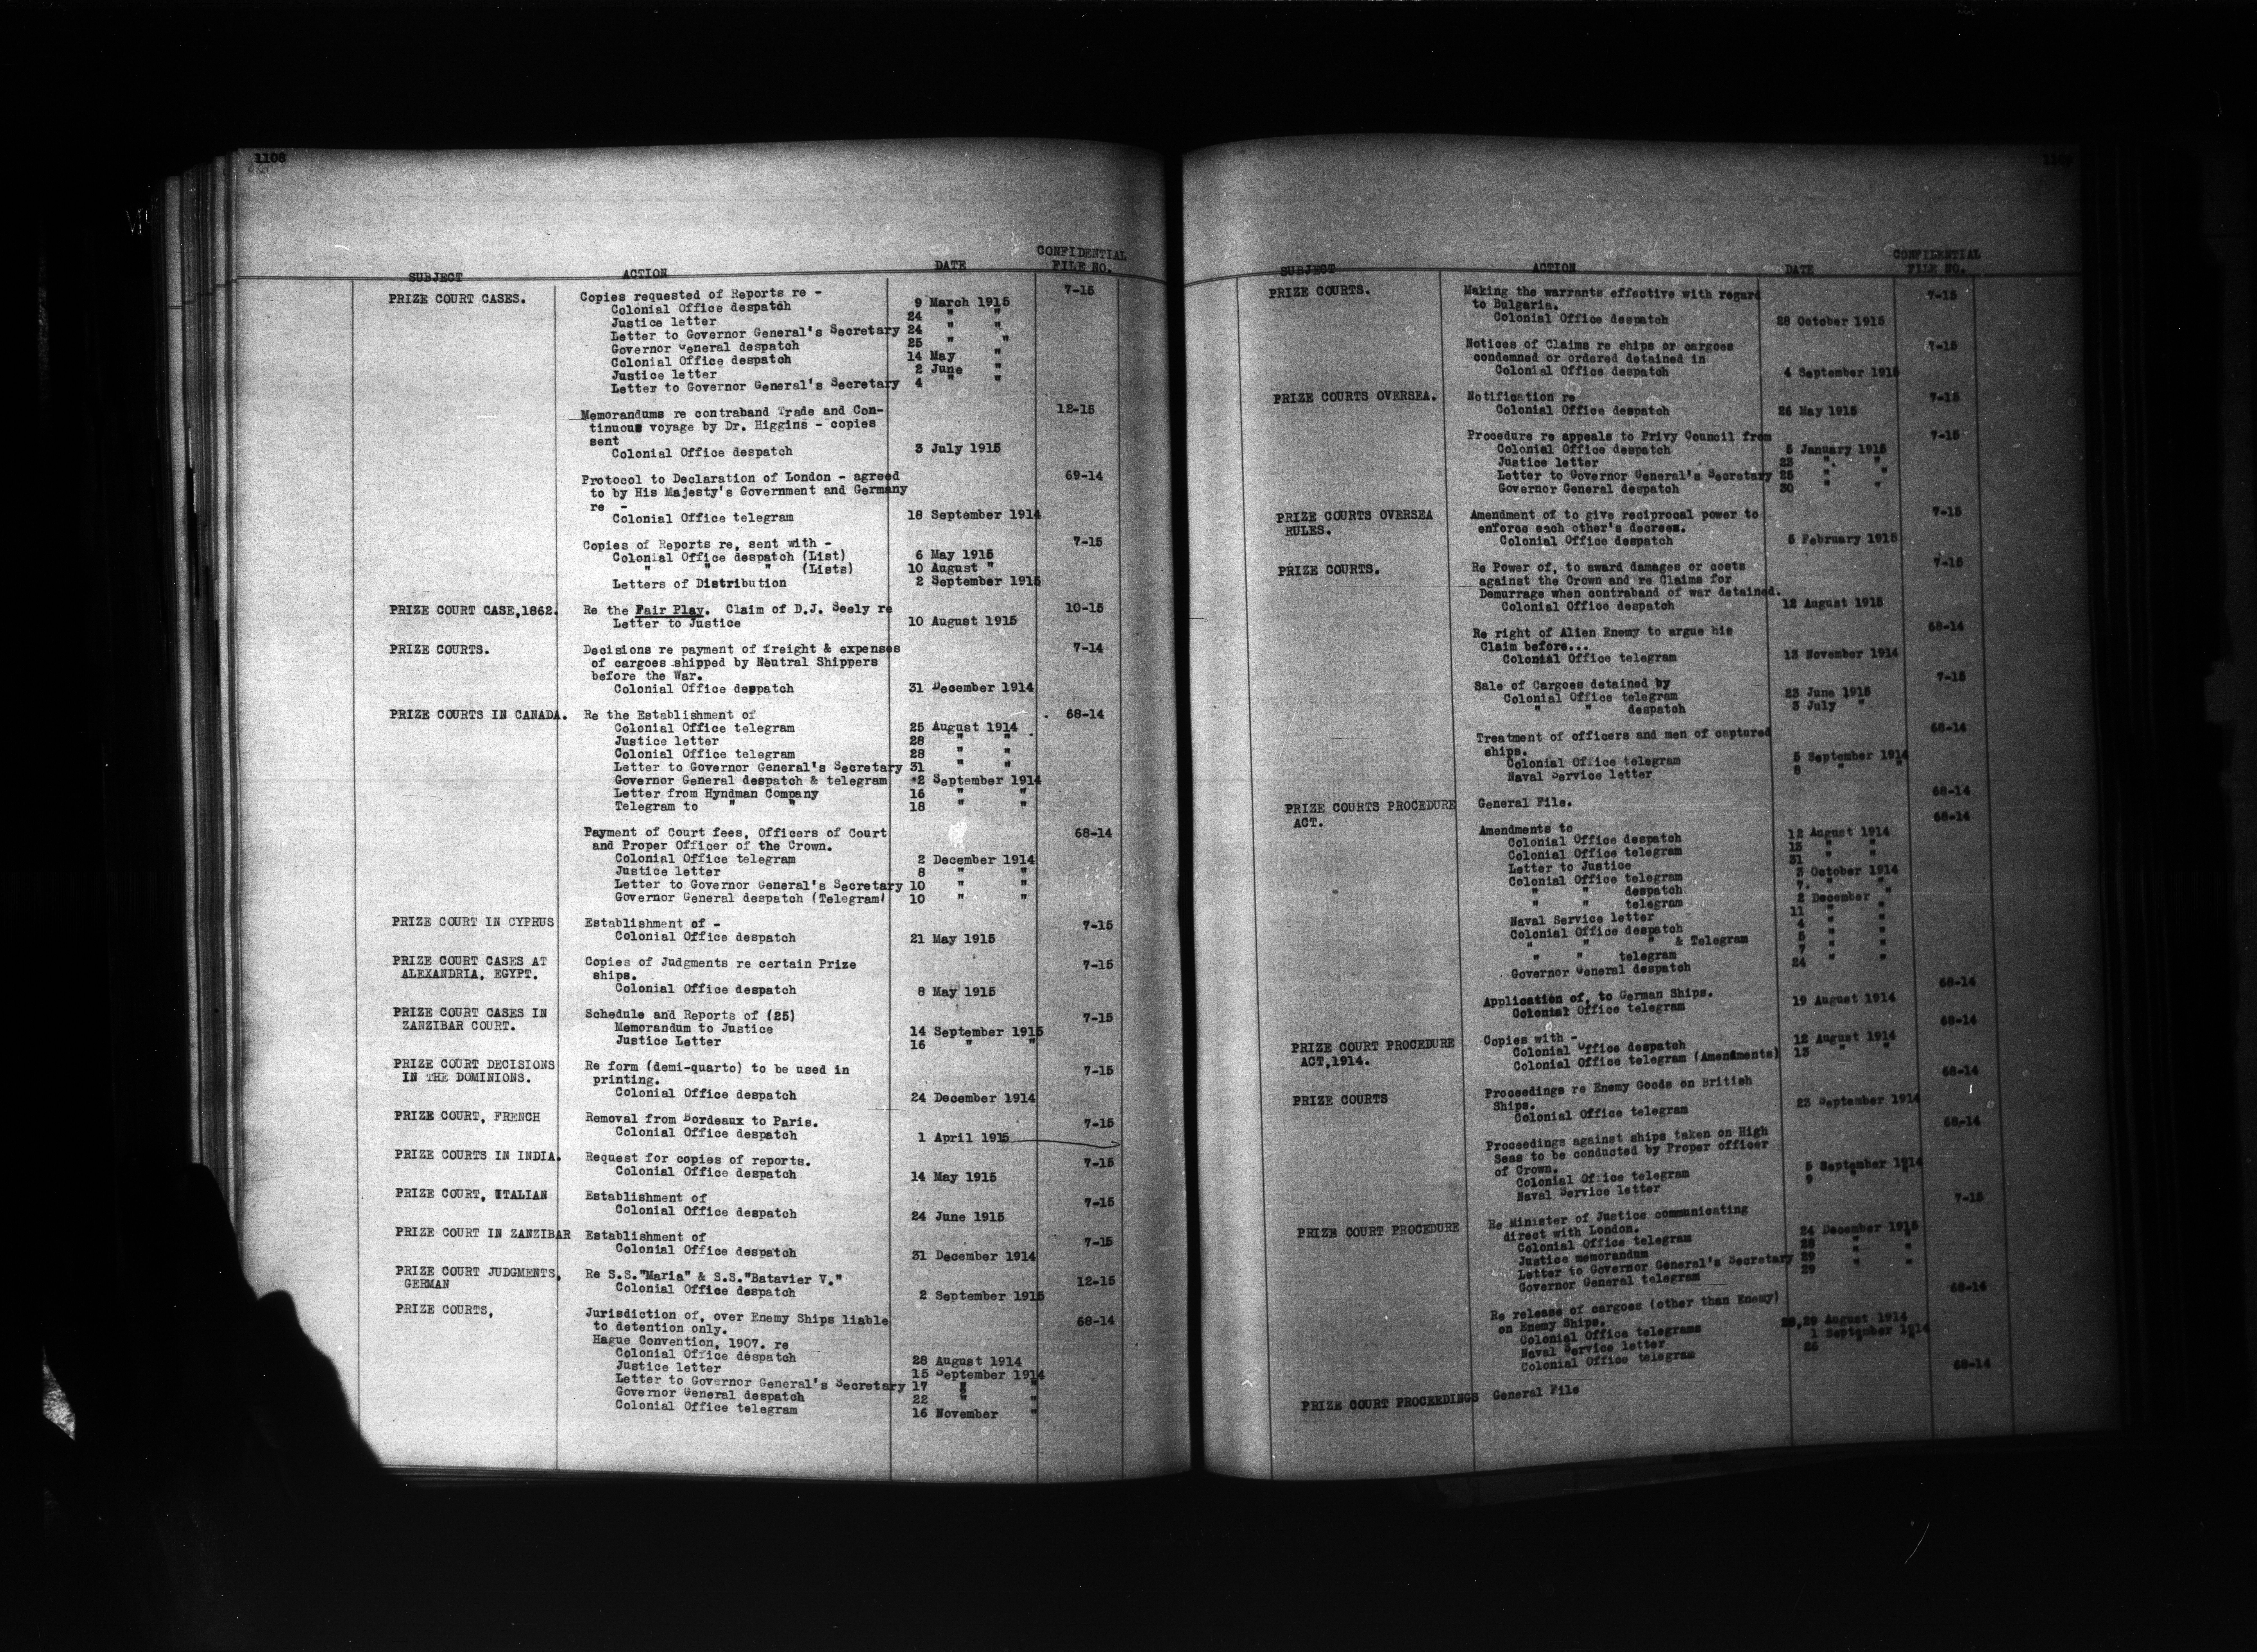 1108
SUBJECT ACTION DATE CONFIDENTIAL FILE NO.
PRIZE COURT CASES. Copies requested of Reports re - 7-15
Colonial Office despatch 9 March 1915
Justice letter 24 " "
Letter to Governor General's Secretary 24 " "
Governor General despatch 25 " "
Colonial Office despatch 14 May "
Justice letter 2 June "
Letter to Governor General's Secretary 4 " "
Memorandums re contraband Trade and Con- 12-15
tinuous voyage by Dr. Higgins - copies
sent
Colonial Office despatch 3 July 1915
Protocol to Declaration of London - agreed 69-14
to by His Majesty's Government and Germany
re -
Colonial Office telegram 18 September 1914
Copies of Reports re, sent with - 7-15
Colonial Office despatch (List) 6 May 1915
" " " (Lists) 10 August "
Letters of Distribution 2 September 1915
PRIZE COURT CASE,1862. Re the Fair Play. Claim of D.J. Seely re 10-15
Letter to Justice 10 August 1915
PRIZE COURTS. Decisions re payment of freight & expenses 7-14
of cargoes shipped by Neutral Shippers
before the War.
Colonial Office despatch 31 December 1914
PRIZE COURTS IN CANADA. Re the Establishment of 68-14
Colonial Office telegram 25 August 1914
Justice letter 28 " "
Colonial Office telegram 28 " "
Letter to Governor General's Secretary 31 " "
Governor General despatch & telegram 2 September 1914
Letter from Hyndman Company 16 " "
Telegram to " " 18 " "
Payment of Court fees, Officers of Court 68-14
and Proper Officer of the Crown.
Colonial Office telegram 2 December 1914
Justice letter 8 " "
Letter to Governor General's Secretary 10 " "
Governor General despatch (Telegram) 10 " "
PRIZE COURT IN CYPRUS Establishment of - 7-15
Colonial Office despatch 21 May 1915
PRIZE COURT CASES AT Copies of Judgments re certain Prize 7-15
ALEXANDRIA, EGYPT. ships.
Colonial Office despatch 8 May 1915
PRIZE COURT CASES IN Schedule and Reports of (25) 7-15
ZANZIBAR COURT. Memorandum to Justice 14 September 1915
Justice Letter 16 " "
PRIZE COURT DECISIONS Re form (demi-quarto) to be used in 7-15
IN THE DOMINIONS. printing.
Colonial Office despatch 24 December 1914
PRIZE COURT, FRENCH Removal from Bordeaux to Paris. 7-15
Colonial Office despatch 1 April 1915
PRIZE COURTS IN INDIA. Request for copies of reports. 7-15
Colonial Office despatch 14 May 1915
PRIZE COURT, ITALIAN Establishment of 7-15
Colonial Office despatch 24 June 1915
PRIZE COURT IN ZANZIBAR Establishment of 7-15
Colonial Office despatch 31 December 1914
PRIZE COURT JUDGMENTS, Re S.S."Maria" & S.S."Batavier V." 12-15
GERMAN Colonial Office despatch 2 September 1915
PRIZE COURTS, Jurisdiction of, over Enemy Ships liable 68-14
to detention only.
Hague Convention, 1907. re
Colonial Office despatch 28 August 1914
Justice letter 15 September 1914
Letter to Governor General's Secretary 17 " "
Governor General despatch 22 " "
Colonial Office telegram 16 November "
SUBJECT ACTION DATE CONFIDENTIAL FILE NO.
PRIZE COURTS. Making the warrants effective with regard 7-15
to Bulgaria.
Colonial Office despatch 28 October 1915
Notices of Claims re ships or cargoes 7-15
condemned or ordered detained in
Colonial Office despatch 4 September 1915
PRIZE COURTS OVERSEA. Notification re 7-15
Colonial Office despatch 26 May 1915
Procedure re appeals to Privy Council from 7-15
Colonial Office despatch 5 January 1915
Justice letter 23 " "
Letter to Governor General's Secretary 25 " "
Governor General despatch 30 " "
PRIZE COURTS OVERSEA Amendment of to give reciprocal power to 7-15
RULES. enforce each other's decrees.
Colonial Office despatch 5 February 1915
PRIZE COURTS. Re Power of, to award damages or costs 7-15
against the Crown and re Claims for
Demurrage when contraband of war detained.
Colonial Office despatch 12 August 1915
Re right of Alien Enemy to argue his 68-14
Claim before...
Colonial Office telegram 13 November 1914
Sale of Cargoes detained by 7-15
Colonial Office telegram 23 June 1915
" " despatch 3 July "
Treatment of officers and men of captured 68-14
ships.
Colonial Office telegram 5 September 1914
Naval Service letter 8 " "
PRIZE COURTS PROCEDURE General File. 68-14
ACT.
Amendments to 68-14
Colonial Office despatch 12 August 1914
Colonial Office telegram 13 " "
Letter to Justice 31 " "
Colonial Office telegram 3 October 1914
" " despatch 7. " "
" " telegram 2 December "
Naval Service letter 11 " "
Colonial Office despatch 4 " "
" " " & Telegram 5 " "
" " telegram 7 " "
Governor General despatch 24 " "
Application of, to German Ships. 68-14
Colonial Office telegram 19 August 1914
PRIZE COURT PROCEDURE Copies with - 68-14
ACT,1914. Colonial Office despatch 12 August 1914
Colonial Office telegram (Amendments) 13 " "
PRIZE COURTS Proceedings re Enemy Goods on British 68-14
Ships.
Colonial Office telegram 23 September 1914
Proceedings against ships taken on High 68-14
Seas to be conducted by Proper officer
of Crown.
Colonial Office telegram 5 September 1914
Naval Service letter 9 " "
PRIZE COURT PROCEDURE Re Minister of Justice communicating 7-15
direct with London.
Colonial Office telegram 24 December 1915
Justice memorandum 28 " "
Letter to Governor General's Secretary 29 " "
Governor General telegram 29 " "
Re release of cargoes (other than Enemy) 68-14
on Enemy Ships.
Colonial Office telegrams 28,29 August 1914
Naval Service letter 1 September 1914
Colonial Office telegram 25 " "
PRIZE COURT PROCEEDINGS General File 68-14